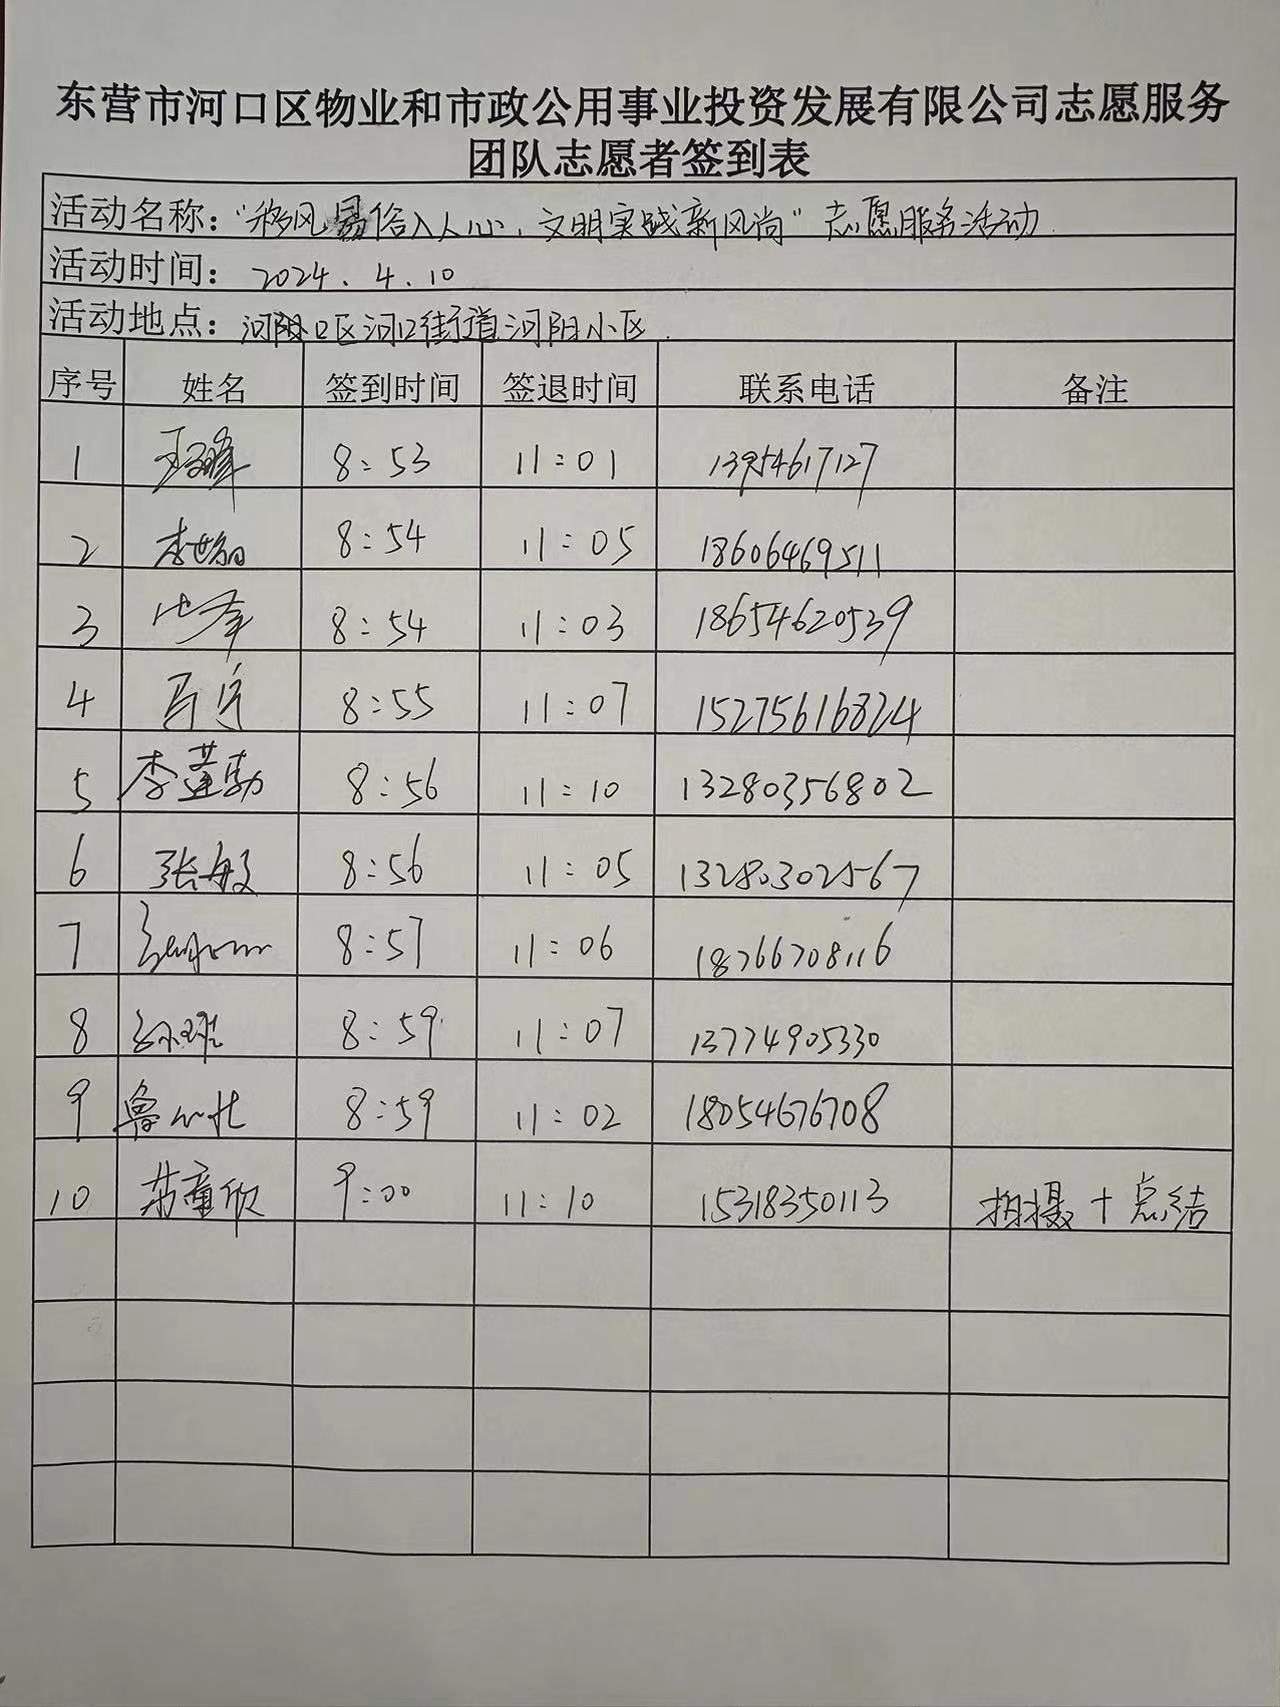 东营市河口区物业和市政公用事业投资发展有限公司志愿服务
团队志愿者签到表
活动名称：“移风易俗入人心，文明实践新风尚”志愿服务活动
活动时间：2024.4.10
活动地点：河阳口区河口街道河阳小区
序号 姓名 签到时间 签退时间 联系电话 备注
1 8:53 11:01 13954617127
2 8:54 11:05 18606469511
3 8:54 11:03 18654620539
4 8:55 11:07 15275616824
5 8:56 11:10 13280356802
6 张敏 8:56 11:05 13280302567
7 8:57 11:06 18766708116
8 8:59 11:07 13774905330
9 8:59 11:02 18054676708
10 9:00 11:10 15318350113 拍摄+总结